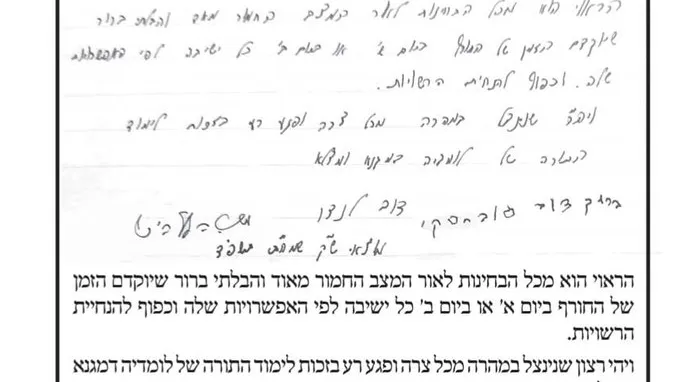 הראוי הוא מכל הבחינות לאור המצב החמור מאד והבלתי ברור
שיוקדם הזמן של החורף ביום א' או ביום ב' כל ישיבה לפי האפשרויות
שלה. וכפוף להנחיית הרשויות.
ויה"ר שננצל במהרה מכל צרה ופגע רע בזכות לימוד
התורה של לומדיה במגנא ומצלא
ברוך דוב פוברסקי דוב לנדו
מוצאי ש"ק שמח"ת תשפ"ד
הראוי הוא מכל הבחינות לאור המצב החמור מאוד והבלתי ברור שיוקדם הזמן
של החורף ביום א' או ביום ב' כל ישיבה לפי האפשרויות שלה וכפוף להנחיית
הרשויות.
ויהי רצון שנינצל במהרה מכל צרה ופגע רע בזכות לימוד התורה של לומדיה דמגנא